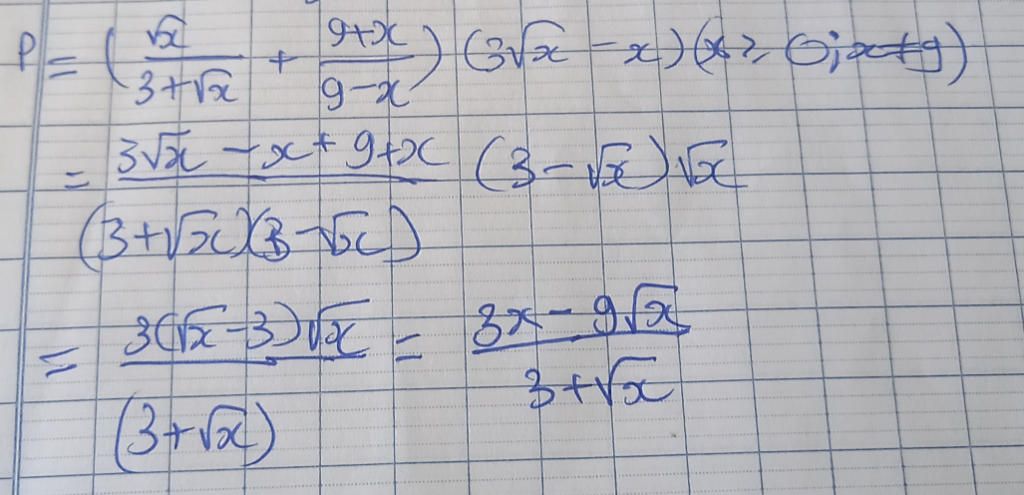 P = (√x/(3+√x) + (9+x)/(9-x)) (3√x - x) (x ≥ 0; x ≠ 9)
= (3√x - x + 9+x)/((3+√x)(3-√x)) (3-√x)√x
= (3(√x-3)√x)/((3+√x)) = (3x - 9√x)/(3+√x)